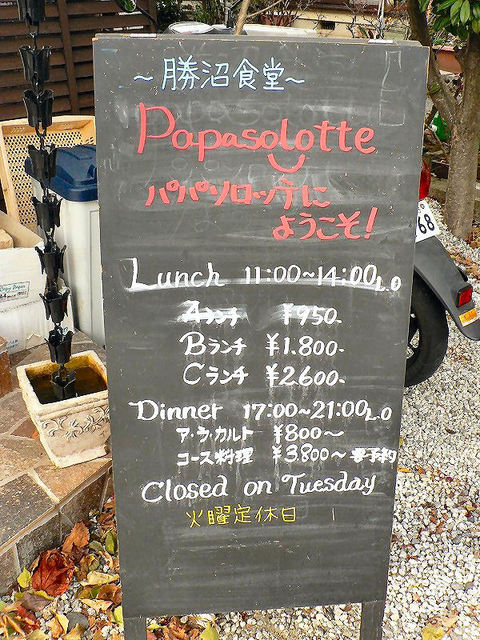 ~勝沼食堂~
Papasolotte
パパソロッテに
ようこそ!
Lunch 11:00~14:00L.O
Aランチ ¥950-
Bランチ ¥1.800-
Cランチ ¥2600-
Dinner 17:00~21:00L.O
ア・ラ・カルト ¥800~
コース料理 ¥3800~ 要予約
Closed on Tuesday
火曜定休日
68